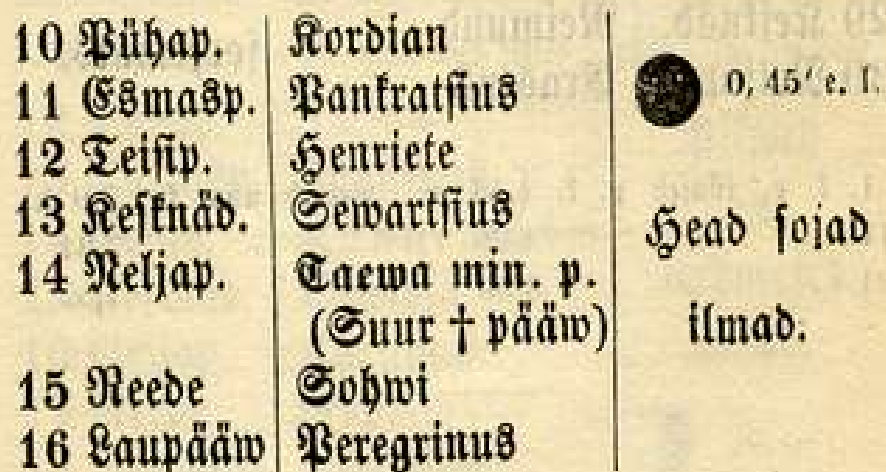 10 Pühap. Kordian
11 Esmasp. Pankratsius
0, 45' e. l.
12 Teisip. Henriete
13 Kesknäd. Sewartsius
Head sojad
14 Neljap. Taewa min. p.
(Suur † pääw)
ilmad.
15 Reede Sohwi
16 Laupääw Peregrinus